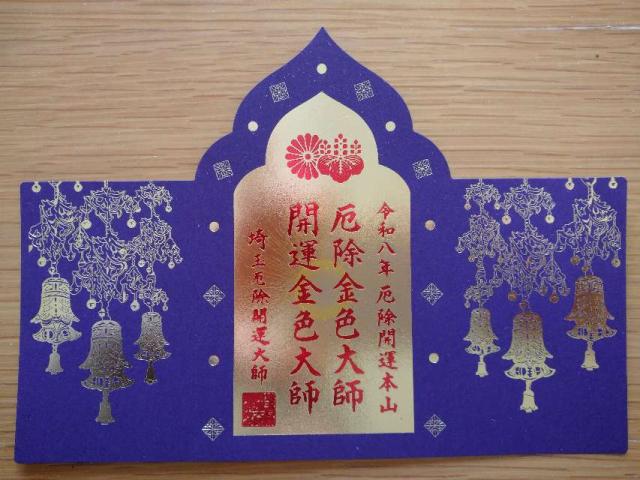 令和八年 厄除開運本山
厄除金色大師
開運金色大師
埼玉厄除開運大師